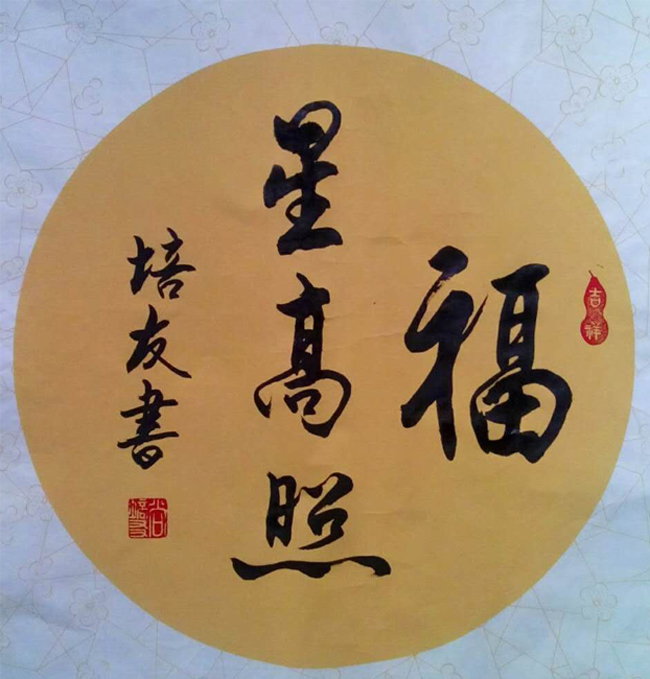 吉祥
福
星高照
培友書